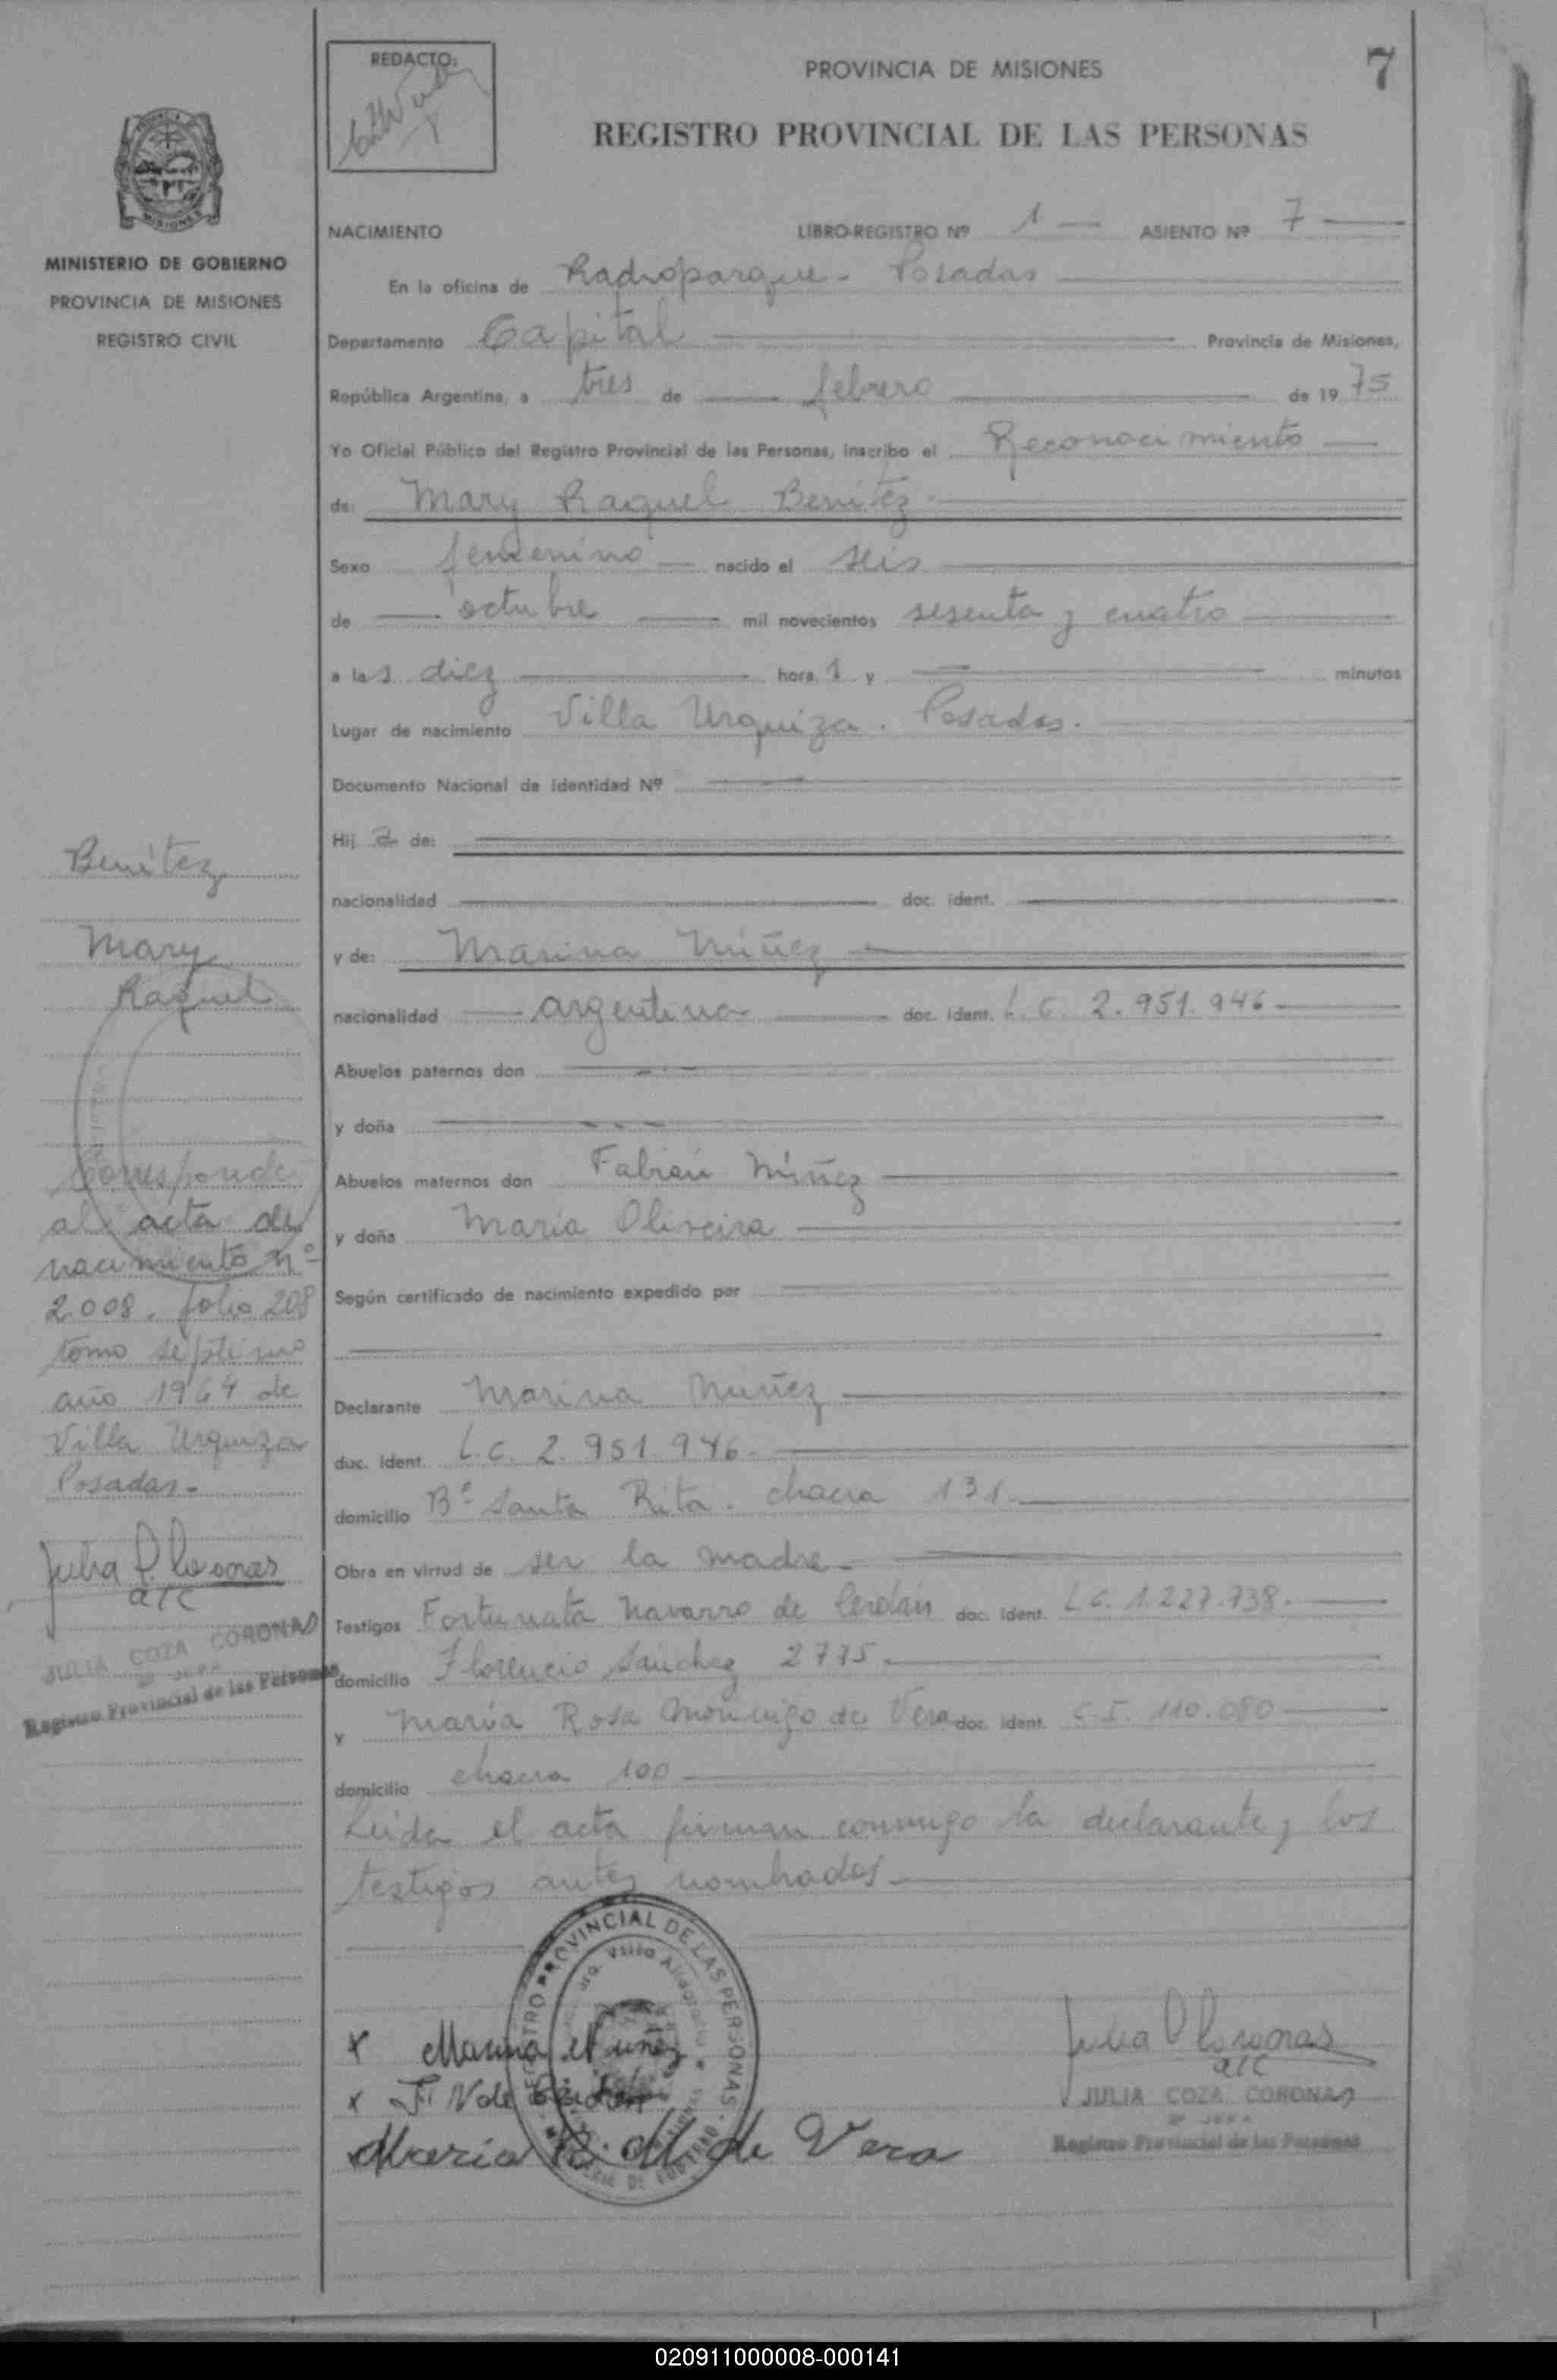 REDACTO:
PROVINCIA DE MISIONES
7
REGISTRO PROVINCIAL DE LAS PERSONAS
MISIONES
MINISTERIO DE GOBIERNO
PROVINCIA DE MISIONES
REGISTRO CIVIL
NACIMIENTO LIBRO-REGISTRO Nº 1 ASIENTO Nº 7
En la oficina de Radioparque - Posadas
Departamento Capital Provincia de Misiones,
República Argentina, a tres de febrero de 1975
Yo Oficial Público del Registro Provincial de las Personas, inscribo el Reconocimiento
de: Mary Raquel Benítez
Sexo femenino nacido el seis
de octubre mil novecientos sesenta y cuatro
a las diez hora 1 y minutos
Lugar de nacimiento Villa Urquiza. Posadas.
Documento Nacional de Identidad Nº
Hij a de:
nacionalidad doc. ident.
y de: Marina Núñez
nacionalidad argentina doc. ident. L. C. 2.951.946
Abuelos paternos don
y doña
Abuelos maternos don Fabián Núñez
y doña María Oliveira
Según certificado de nacimiento expedido por
Declarante Marina Nuñez
doc. ident. L.C. 2.951.946.
domicilio Bº Santa Rita. chacra 131
Obra en virtud de ser la madre
Testigos Fortunata Navarro de Cerdán doc. ident. L.C. 1.227.738.
domicilio Florencio Sánchez 2775
y María Rosa Monnigo de Vera doc. ident. C.I. 110.080
domicilio chacra 100
Leída el acta firman conmigo la declarante y los
testigos antes nombrados
Benítez
Mary
Raquel
Corresponde
al acta de
nacimiento nº
2.008. folio 208
tomo séptimo
año 1964 de
Villa Urquiza
Posadas
Julia C. Coronas
a/c
JULIA COZA CORONAS
2º JEFA
Registro Provincial de las Personas
REGISTRO PROVINCIAL DE LAS PERSONAS
Marina Nuñez
F. N de Cerdán
María R. M. de Vera
Julia C Coronas
a/c
JULIA COZA CORONAS
2º JEFA
Registro Provincial de las Personas
020911000008-000141